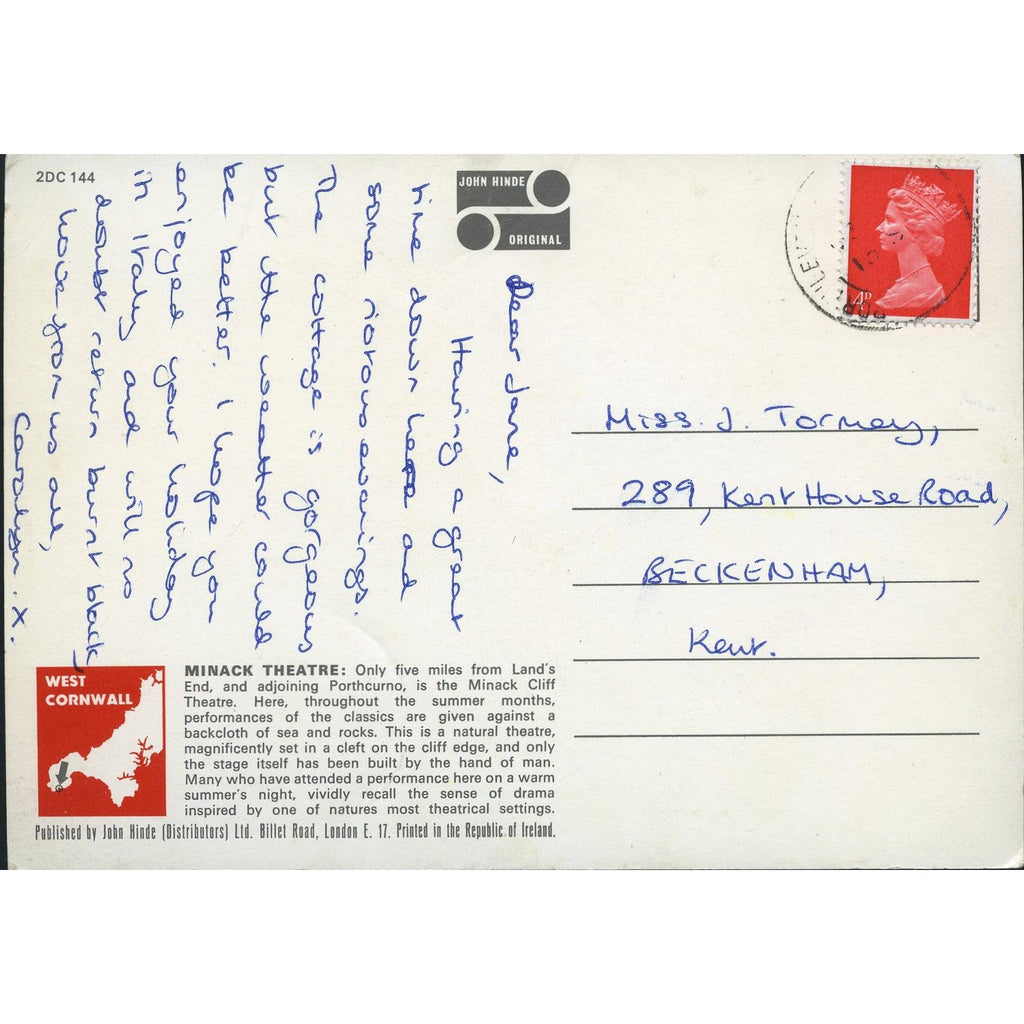 2DC 144
JOHN HINDE
ORIGINAL
Dear Jane,
Having a great
time down here and
some riotous evenings.
The cottage is gorgeous
but the weather could
be better. I hope you
enjoyed your holiday
in Italy and will no
doubt return burnt black,
love from us all,
Carolyn. x.
4D
Miss. J. Tormey,
289, Kent House Road,
BECKENHAM,
Kent.
WEST
CORNWALL
MINACK THEATRE: Only five miles from Land's
End, and adjoining Porthcurno, is the Minack Cliff
Theatre. Here, throughout the summer months,
performances of the classics are given against a
backcloth of sea and rocks. This is a natural theatre,
magnificently set in a cleft on the cliff edge, and only
the stage itself has been built by the hand of man.
Many who have attended a performance here on a warm
summer's night, vividly recall the sense of drama
inspired by one of natures most theatrical settings.
Published by John Hinde (Distributors) Ltd. Billet Road, London E. 17. Printed in the Republic of Ireland.